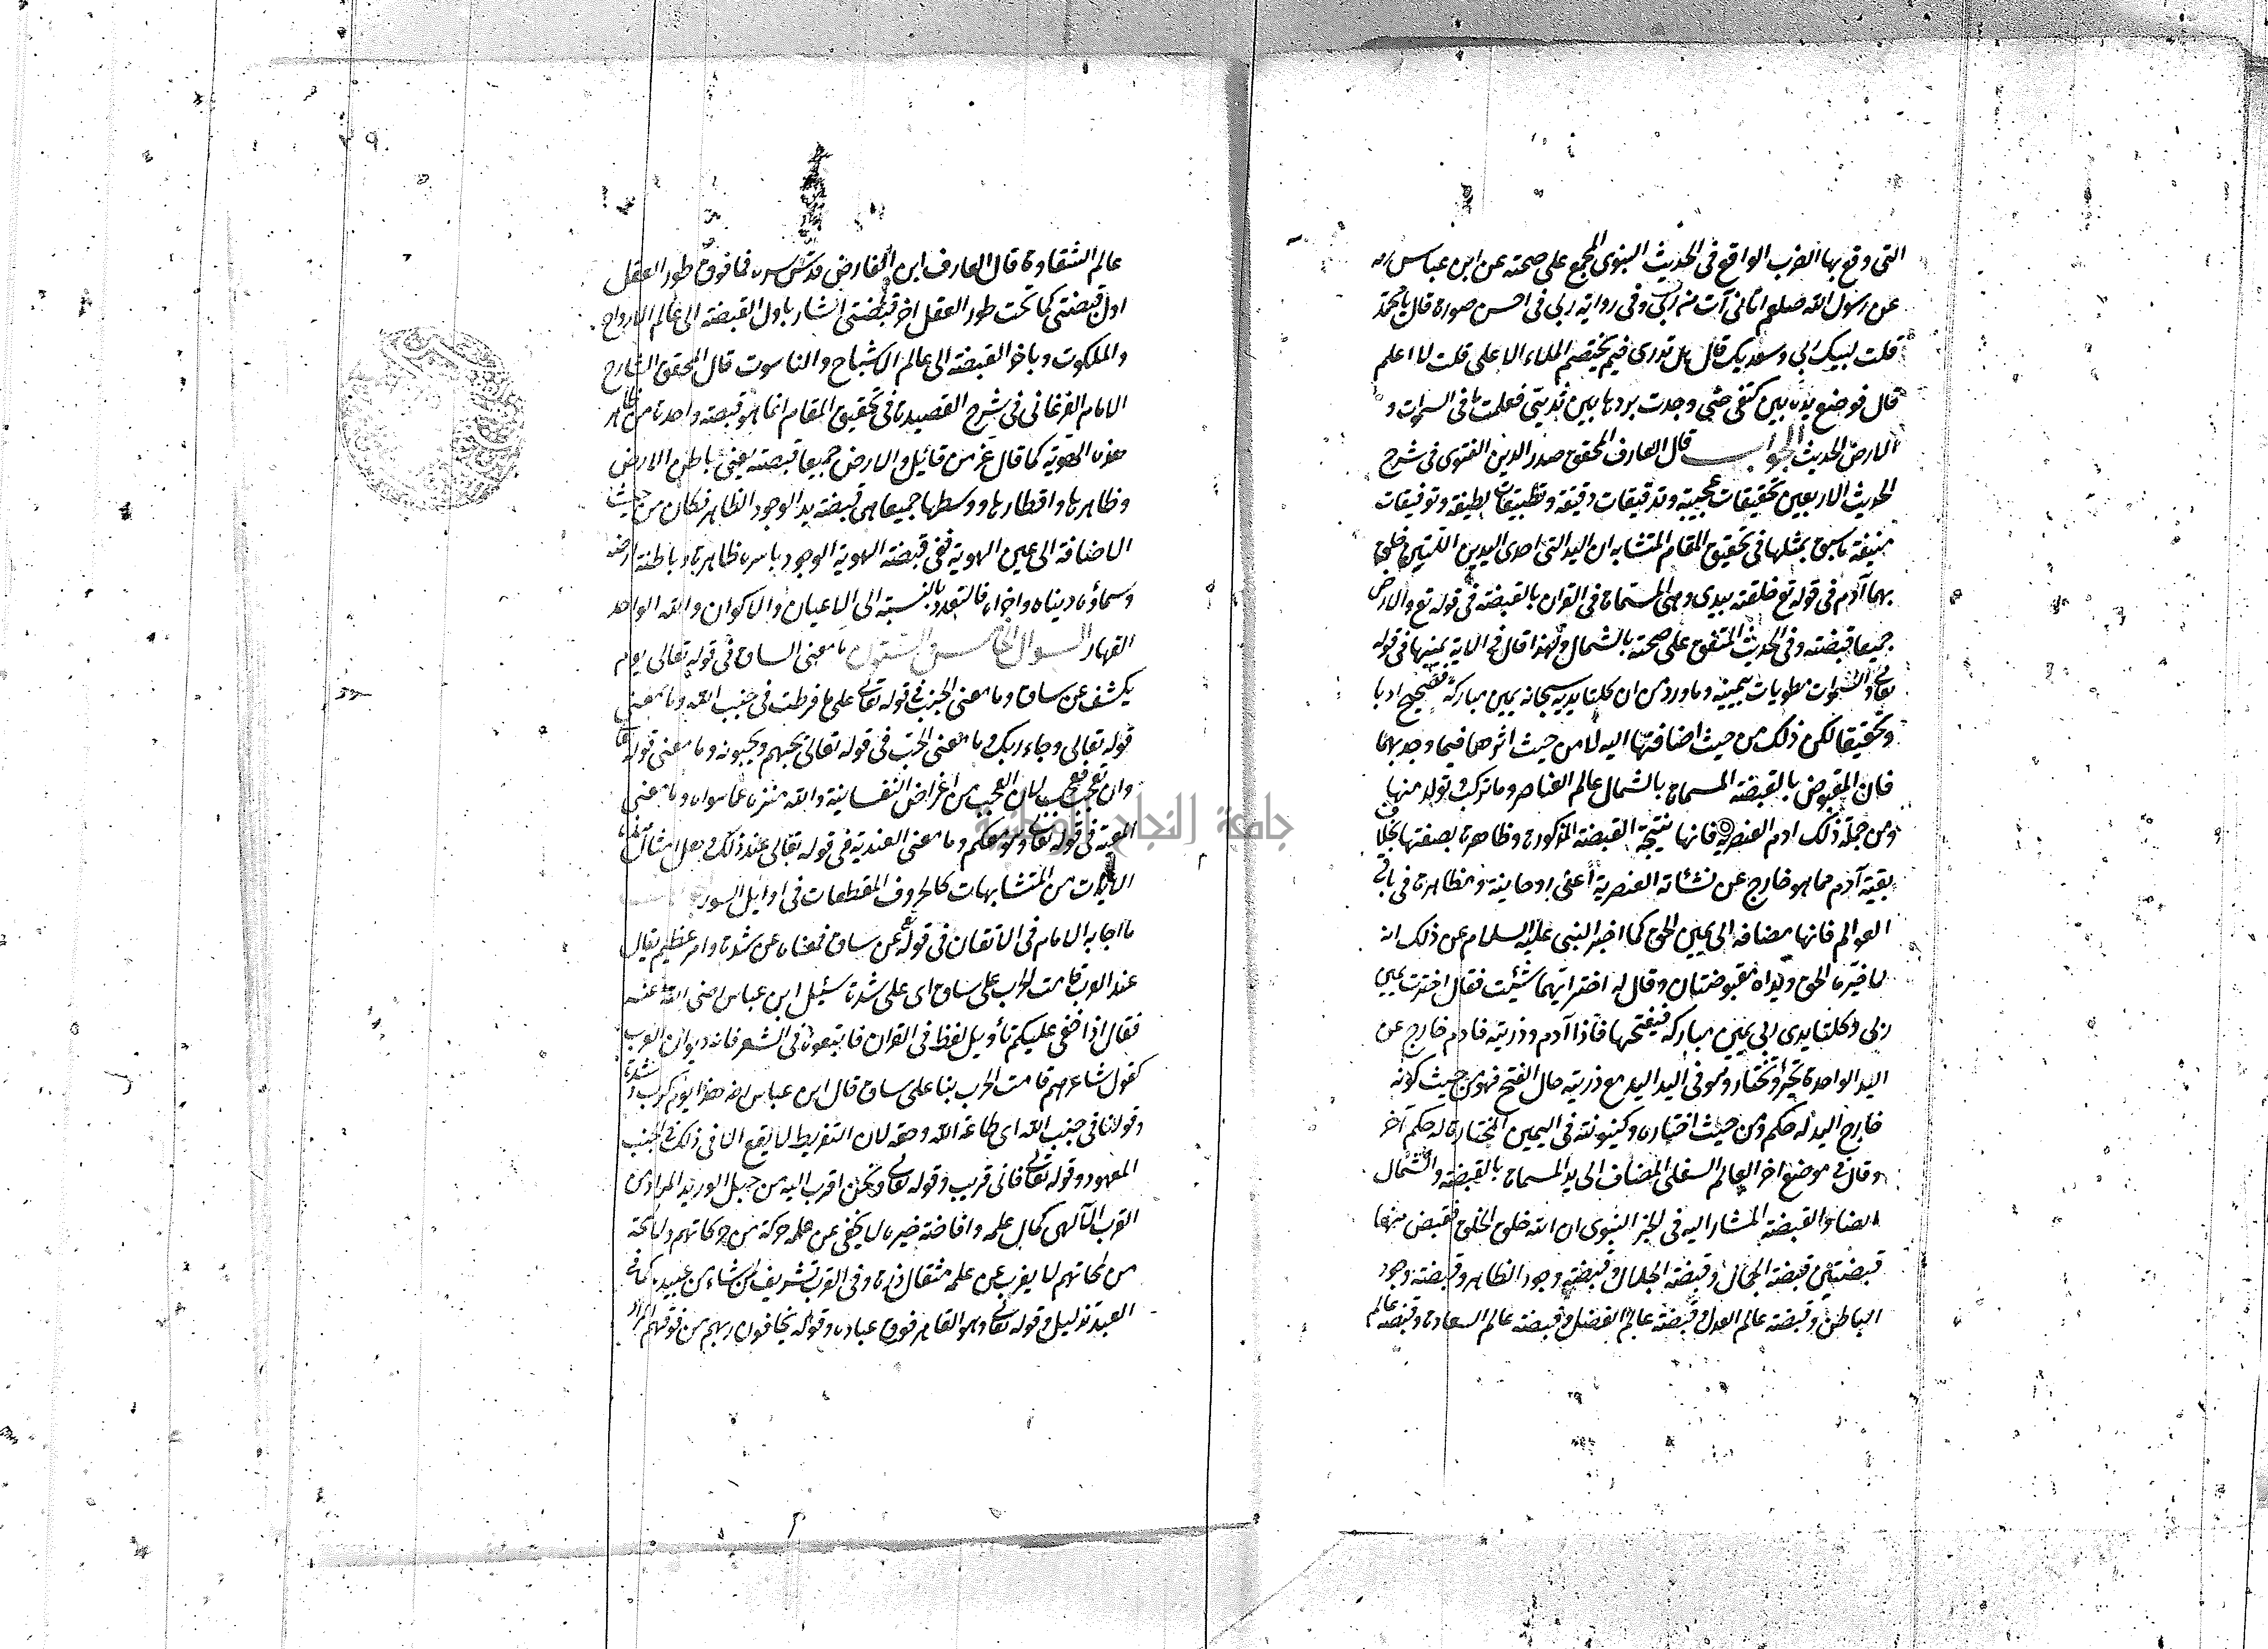 التى وقع بها الضرب الواقع فى الحديث النبوى المجمع على صحته عن ابن عباس رضه
عن رسول الله صلعم اتانى آت من ربى وفى رواية ربى فى احسن صورة قال يا محمد
قلت لبيك ربى وسعديك قال هل تدرى فيم يختصم الملاء الاعلى قلت لا اعلم
قال فوضع يده بين كتفى حتى وجدت بردها بين ثديتى فعلمت ما فى السموات و
الارض الحديث الجواب قال العارف المحقق صدر الدين القنوى فى شرح
الحديث الاربعين تحقيقات عجيبة وتدقيقات دقيقة وتطبيقات لطيفة وتوفيقات
منيفة ما سبق بمثلها فى تحقيق المقام المتشابه ان اليد التى احدى اليدين اللتين خلق
بهما آدم فى قوله تع خلقته بيدى وهى المسماة فى القران بالقبضة فى قوله تع والارض
جميعا قبضته وفى الحديث المتفق على صحته بالشمال ولهذا قال فى الاية يمينها فى قوله
تعالى والسموات مطويات بيمينه وما ورد من ان كلتا يديه سبحانه يمين مباركة فصحيح ادبا
وتحقيقا لكن ذلك من حيث اضافتها اليه لا من حيث اثرهما فيما وجد بهما
فان المقبوض بالقبضة المسماة بالشمال عالم العناصر وما تركب وتولد منها
ومن جملة ذلك ادم العنصرية فانها نتيجة القبضة المذكورة وظاهرة بصفتها بخلاف
بقية آدم مما هو خارج عن نشاته العنصرية أعنى روحانيته ومظاهره فى باقى
العوالم فانها مضافه الى يمين الحق كما اخبر النبى عليه السلام عن ذلك انه
لما خيره الحق ويداه مقبوضتان وقال له اختر ايتهما شئيت فقال اخترت يمين
ربى وكلتا يدى ربى يمين مباركة فيفتحها فاذا آدم وذريته فادم خارج عن
اليد الواحدة يخير ويختار وهو فى اليد اليد مع ذريته حال الفتح فهو من حيث كونه
خارج اليد له حكم ومن حيث اختياره وكينونته فى اليمين المختارة له حكم آخر
وقال فى موضع اخر العالم السفلى المضاف الى يد المسماة بالقبضة والشمال
ايضا والقبضة المشار اليه فى الخبر النبوى ان الله خلق الخلق فقبض منها
قبضتين قبضة الجمال وقبضة الجلال وقبضة وجود الظاهر وقبضة وجود
الباطن وقبضة عالم العدل وقبضة عالم الفضل وقبضة عالم السعادة وقبضة عالم
عالم الشقاوة قال العارف ابن الفارض قدس سره فما فوق طور العقل
اول قبضتى كما تحت طور العقل اخر قبضتى اشار باول القبضة الى عالم الارواح
والملكوت وباخر القبضة الى عالم الاشباح والناسوت قال المحقق الشارح
الامام الفرغانى فى شرح القصيدة فى تحقيق المقام انما هو قبضة واحدة من ظاهر
هذه الهوية كما قال عز من قائيل والارض جميعا قبضته يعنى باطن الارض
وظاهرها واقطارها ووسطها جميعا هى قبضة يد الوجود الظاهر فكان من حيث
الاضافة الى عين الهوية ففى قبضة الهوية الوجود باسره ظاهره وباطنه ارضه
وسماؤه دنياه واخراه فالتعدد بالنسبة الى الاعيان والاكوان والله الواحد
القهار السوال الخامس والستون ما معنى الساق فى قوله تعالى يوم
يكشف عن ساق وما معنى الجنب فى قوله تعالى على ما فرطت فى جنب الله وما معنى
قوله تعالى وجاء ربك وما معنى الحب فى قوله تعالى يحبهم ويحبونه وما معنى قوله تعالى
وان تعجب فعجب لان العجب من اغراض النفسانية والله منزه عما سواه وما معنى
المعية فى قوله تعالى وهو معكم وما معنى العندية فى قوله تعالى عند ذلك وهل امثال هذه
الايات من المتشابهات كالحروف المقطعات فى اوايل السور
ما اجابه الامام فى الاتقان فى قوله عن ساق فمعناه عن شدة وامر عظيم يقال
عند العرب قامت الحرب على ساق اى على شدة سئيل ابن عباس رضى الله عنه
فقال اذا خفى عليكم تأويل لفظ فى القران فابتغوه فى الشعر فانه ديوان العرب
كقول شاعرهم قامت الحرب بنا على ساق قال ابن عباس رضه هذا يوم كرب وشدة
وقولنا فى جنب الله اى طاعة الله وحقه لان التفريط لا يقع الا فى ذلك فى الجنب
المعهود وقوله تعالى فانى قريب وقوله تعالى ونحن اقرب اليه من حبل الوريد المراد من
القرب الآلهى كمال علمه وافاضة خيره لا يخفى عن علمه حركة من حركاتهم ولمحة
من لمحاتهم لا يغرب عن علمه مثقال ذرة وفى القرب تشريف لمن شاء من عبيده كما فى
العبد تذليل وقوله تعالى وهو القاهر فوق عباده وقوله يخافون ربهم من فوقهم المراد
جامعة النجاح الوطنية